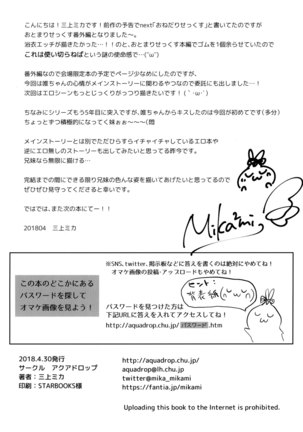 こんにちは！三上ミカです！前作の予告でnext「おねだりせっくす」と書いてたのですが
おとまりせっくす番外編となりました～。
浴衣エッチが描きたかった…！！のと、おとまりせっくす本編でゴムを1個余らせていたので
これは使い切らねばという謎の使命感で…(˘ω˘)
番外編なので会場限定本の予定でページ少なめにしたのですが、
今回は誰ちゃんの心情がメインストーリーに関わるやつなので委託にも出しました…！
次回はエロシーンもっとじっくりがっつり描きたいです！(｀･ω･´)
ちなみにシリーズもう5年目に突入ですが、誰ちゃんからキスしたのは今回が初めてです（多分）
ちょっとずつ積極的になってく妹ぉぉ～～～(悶
メインストーリーとは別でただひたすらイチャイチャしているエロ本や
逆にエロ無しのストーリーも出してみたいと思ってる昨今です。
兄妹なら無限に描ける…
完結までの間にできる限り兄妹の色んな姿を描いてあげたいと思ってるので
ぜひぜひ見守ってくださると幸いです。
ではでは、また次の本にてー！！
201804　三上ミカ
Mikami
この本のどこかにある
パスワードを探して
オマケ画像を見よう！
※SNS、twitter、掲示板などに答えを書くのは絶対にやめてね！
オマケ画像の投稿・アップロードもやめてね！
ヒント：
背表紙(˘ω˘)
パスワードを見つけた方は
下記URLに答えを入れてアクセスしてね！
http://aquadrop.chu.jp/ パスワード .htm
2018.4.30発行
サークル　アクアドロップ
著者：三上ミカ
印刷：STARBOOKS様
http://aquadrop.chu.jp/
aquadrop@lh.chu.jp
twitter@mika_mikami
https://fantia.jp/mikami
Uploading this book to the Internet is prohibited.